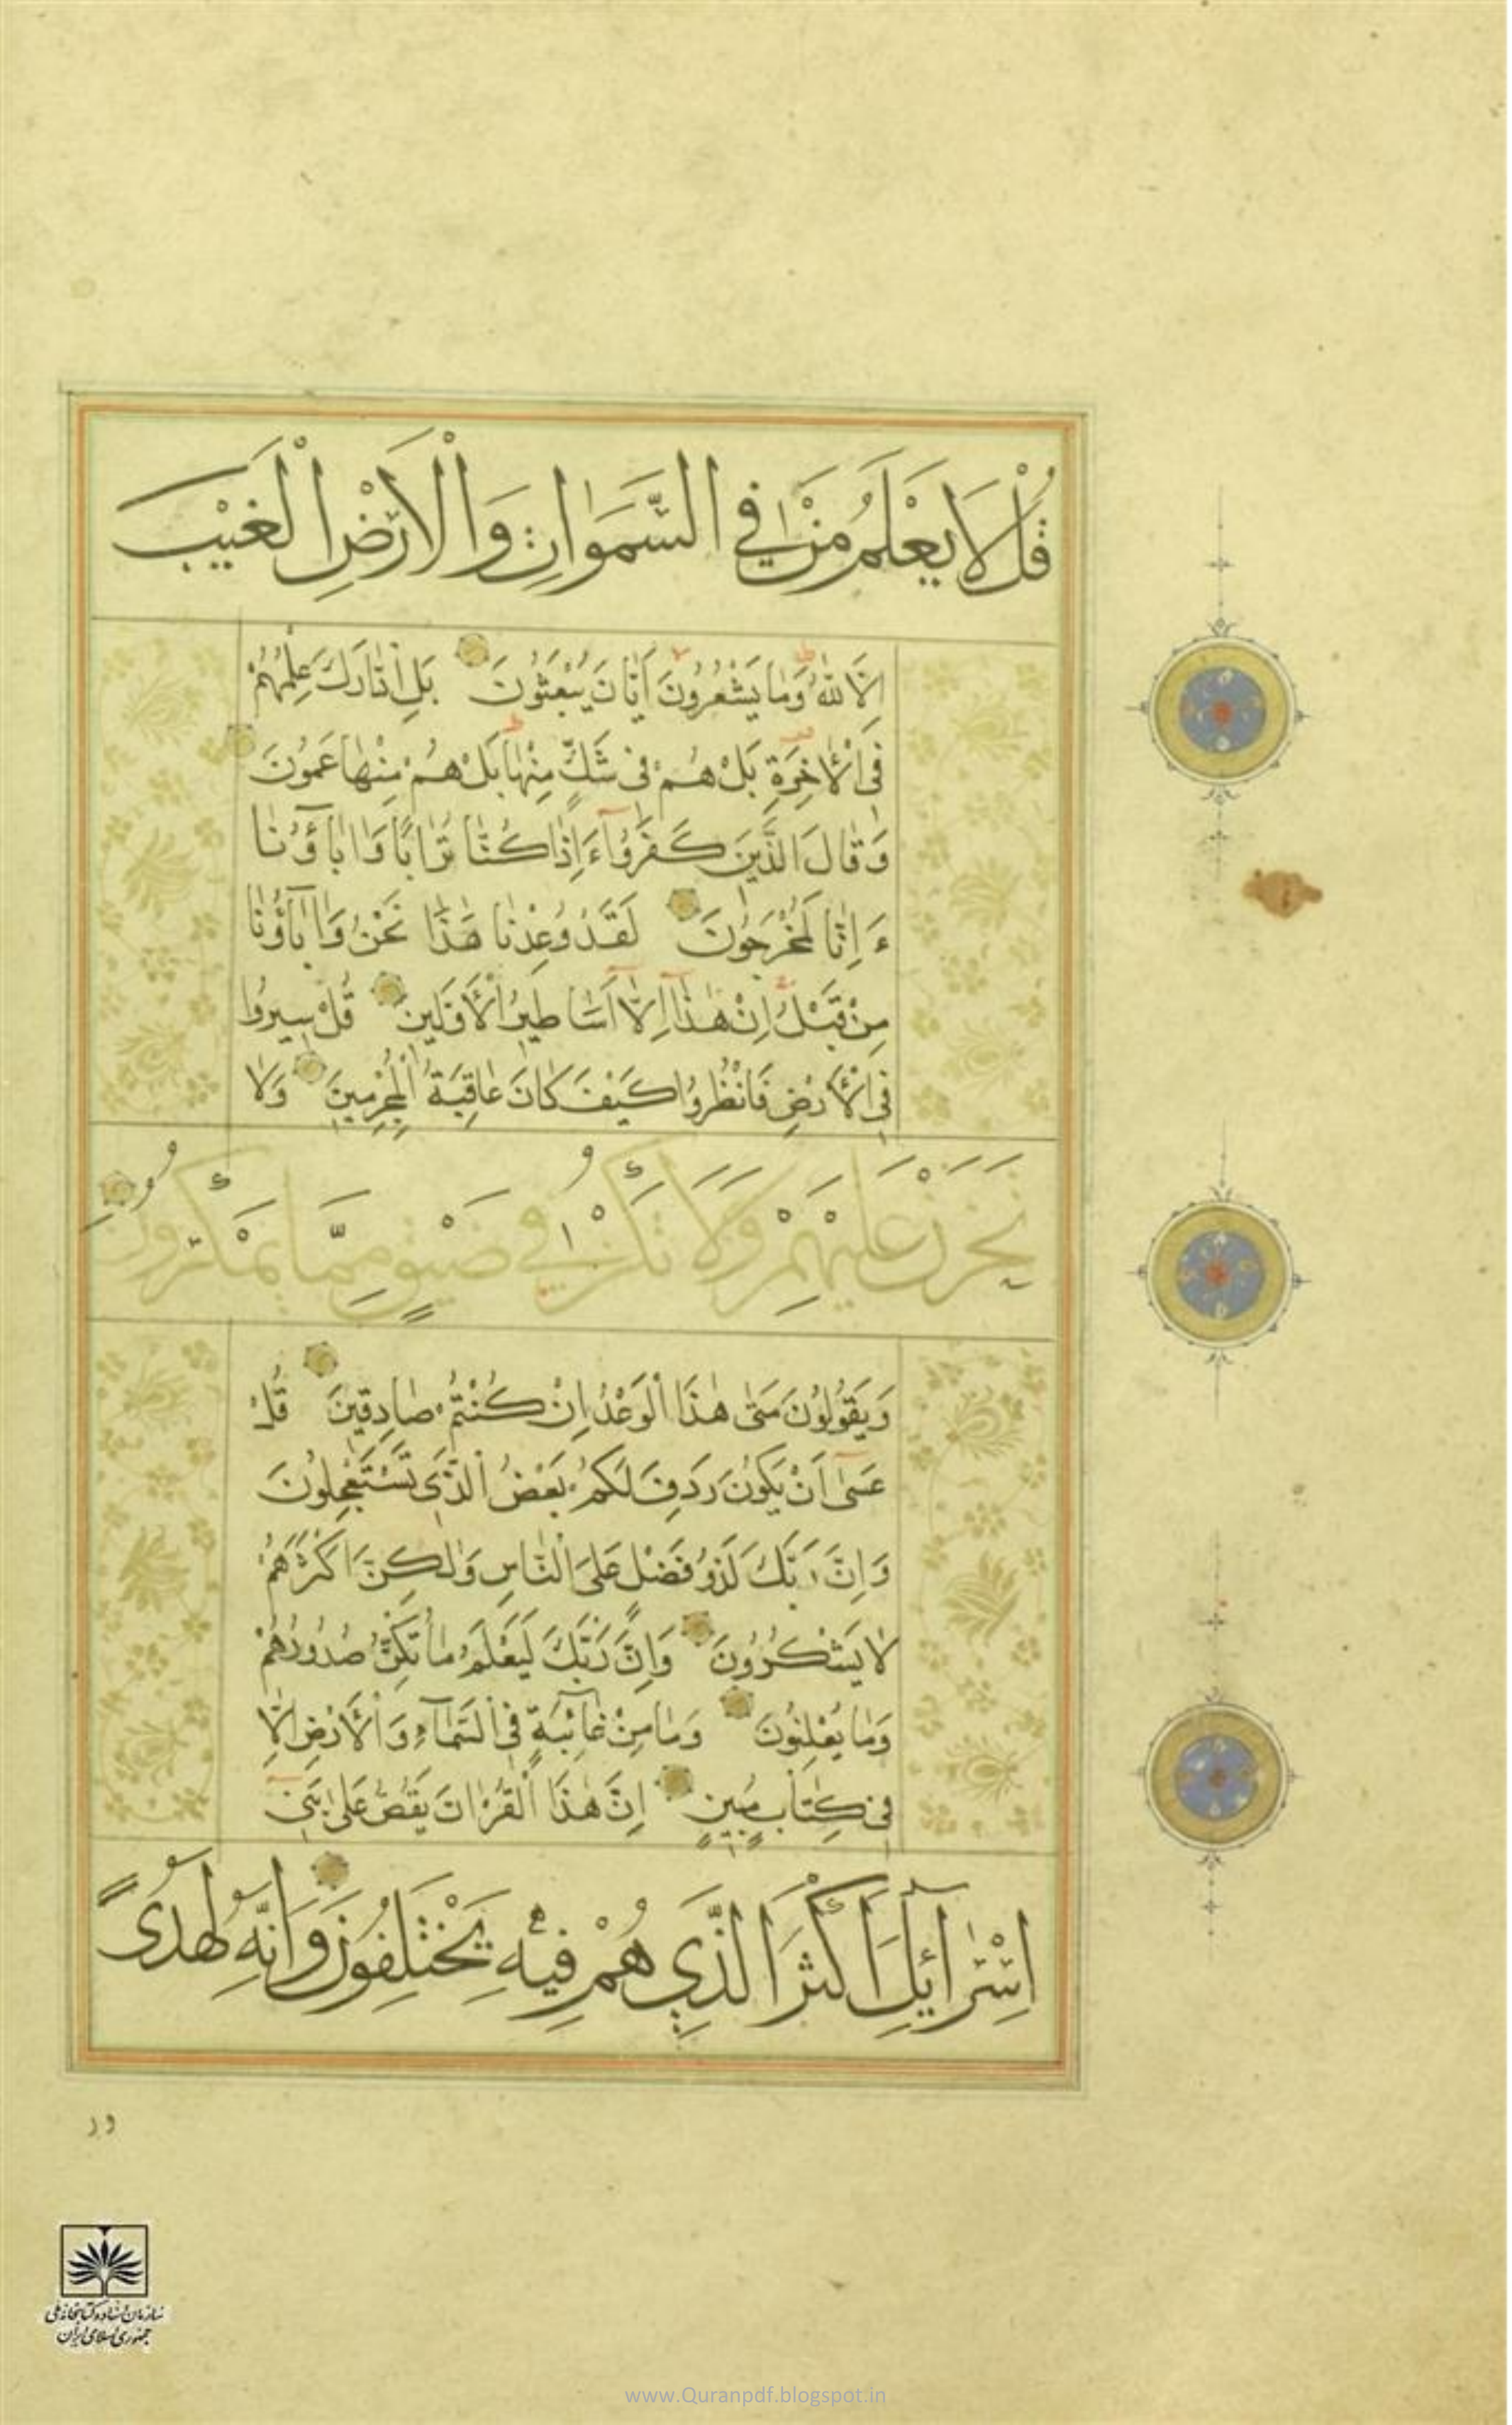 قُلْ لَا يَعْلَمُ مَنْ فِي السَّمٰوَاتِ وَالْاَرْضِ الْغَيْبَ
اِلَّا اللّٰهُ وَمٰا يَشْعُرُونَ اَيّٰانَ يُبْعَثُونَ بَلِ ادّٰارَكَ عِلْمُهُمْ
فِى الْاٰخِرَةِ بَلْ هُمْ فى شَكٍّ مِنْهٰا بَلْ هُمْ مِنْهٰا عَمُونَ
وَقٰالَ الَّذينَ كَفَرُوٓا ءَاِذٰا كُنّٰا تُرٰابًا وَاٰبٰٓاؤُنٰا
ءَاِنّٰا لَمُخْرَجُونَ لَقَدْ وُعِدْنٰا هٰذٰا نَحْنُ وَاٰبٰٓاؤُنٰا
مِنْ قَبْلُ اِنْ هٰذٰٓا اِلّٰٓا اَسٰاطيرُ الْاَوَّلينَ قُلْ سيرُوا
فِى الْاَرْضِ فَانْظُرُوا كَيْفَ كٰانَ عٰاقِبَةُ الْمُجْرِمينَ وَلٰا
تَحْزَنْ عَلَيْهِمْ وَلَا تَكُنْ فِي ضَيْقٍ مِمَّا يَمْكُرُونَ
وَيَقُولُونَ مَتٰى هٰذَا الْوَعْدُ اِنْ كُنْتُمْ صٰادِقينَ قُلْ
عَسٰٓى اَنْ يَكُونَ رَدِفَ لَكُمْ بَعْضُ الَّذى تَسْتَعْجِلُونَ
وَاِنَّ رَبَّكَ لَذُو فَضْلٍ عَلَى النّٰاسِ وَلٰكِنَّ اَكْثَرَهُمْ
لٰا يَشْكُرُونَ وَاِنَّ رَبَّكَ لَيَعْلَمُ مٰا تُكِنُّ صُدُورُهُمْ
وَمٰا يُعْلِنُونَ وَمٰا مِنْ غٰٓائِبَةٍ فِى السَّمٰٓاءِ وَالْاَرْضِ اِلّٰا
فى كِتٰابٍ مُبينٍ اِنَّ هٰذَا الْقُرْاٰنَ يَقُصُّ عَلٰى بَنٓى
اِسْرٰٓائيلَ اَكْثَرَ الَّذِي هُمْ فِيْهِ يَخْتَلِفُونَ وَاِنَّهُ لَهُدًى
سازمان اسناد و کتابخانه ملی
جمهوری اسلامی ایران
www.Quranpdf.blogspot.in